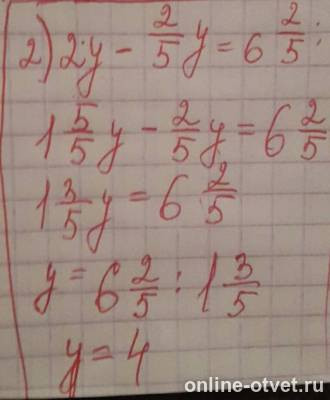 2) 2y - 2/5 y = 6 2/5 ;
1 5/5 y - 2/5 y = 6 2/5
1 3/5 y = 6 2/5
y = 6 2/5 : 1 3/5
y = 4
online-otvet.ru